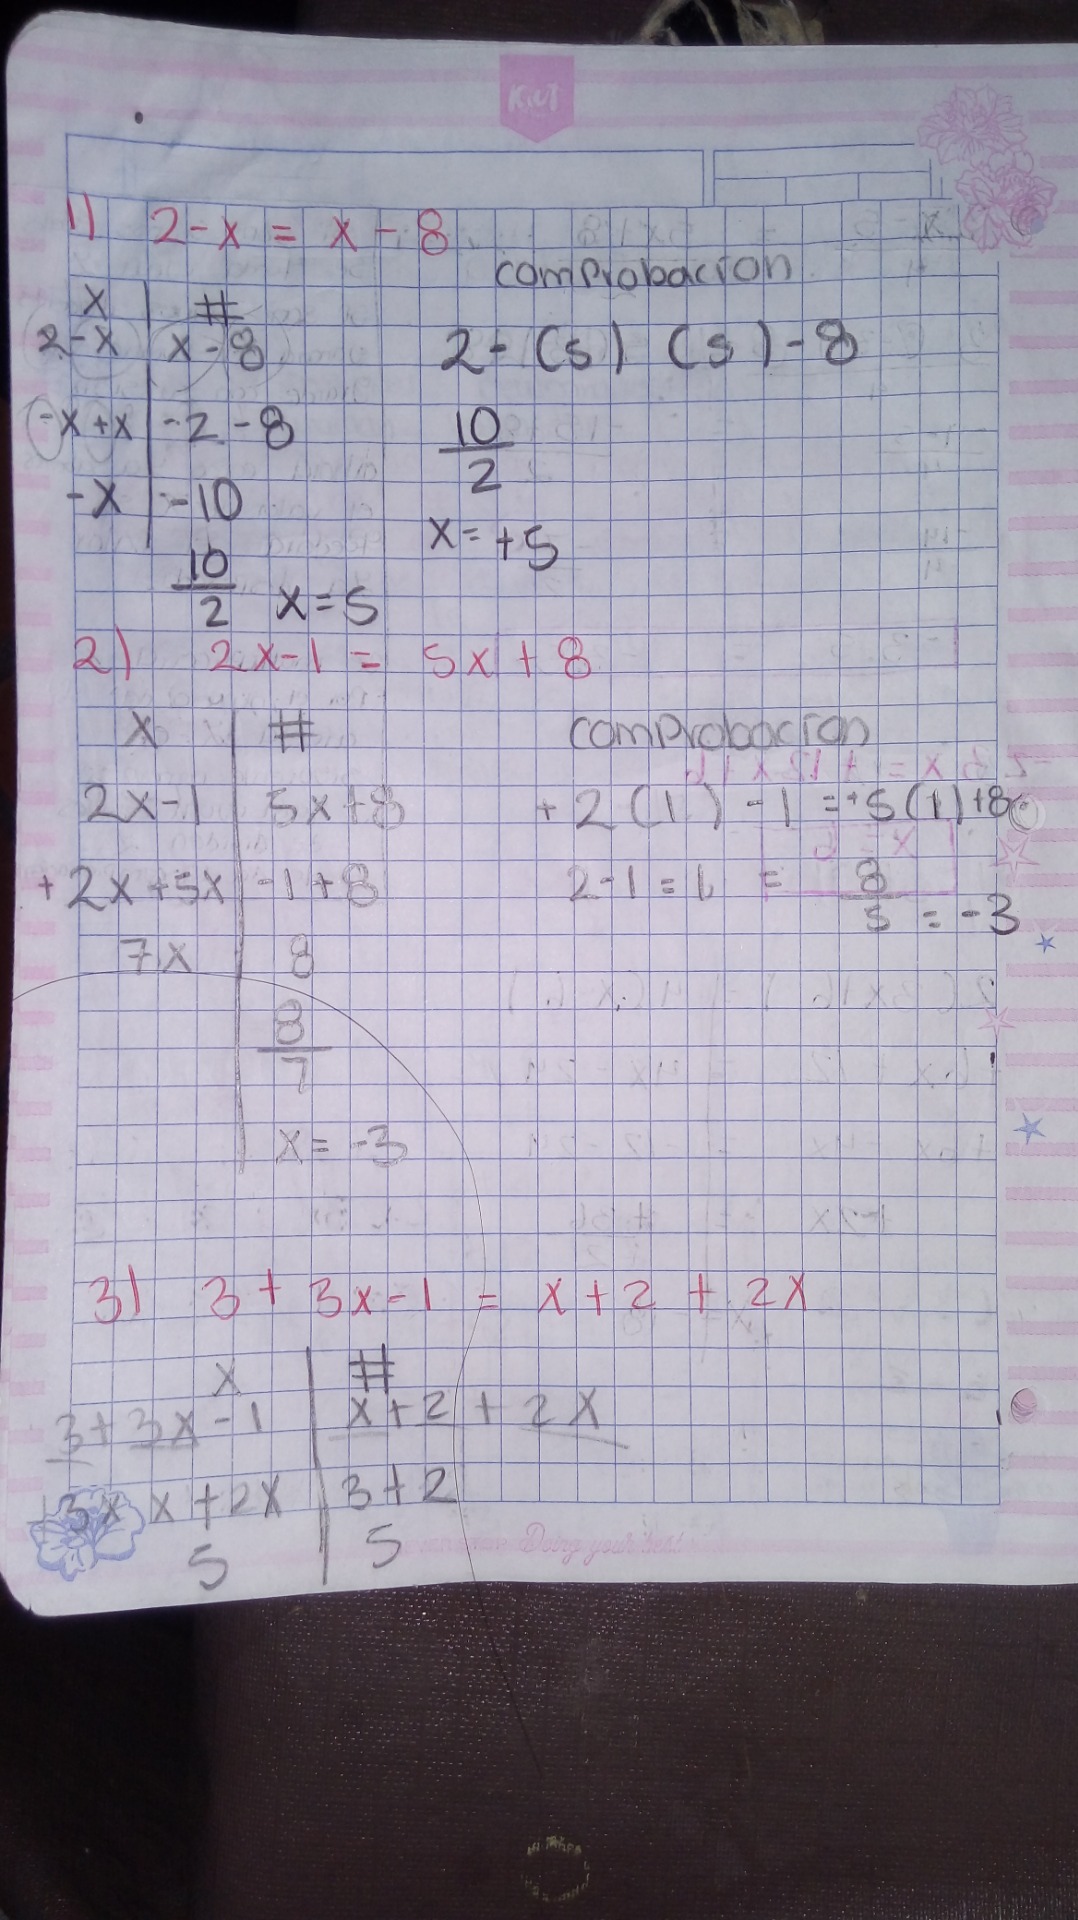 KIUT
1) 2-x = x-8
comprobacion
x | #
2-x | x-8
2-(5) (5)-8
-x+x | -2-8
10
2
-x | -10
x=+5
10
2
x=5
2) 2x-1 = 5x+8
x | #
comprobacion
2x-1 | 5x+8
+2(1)-1=+5(1)+8
+2x+5x | -1+8
2-1=1 = 8
5 = -3
7x | 8
8
7
x= -3
3) 3+3x-1 = x+2+2x
x | #
3+3x-1 | x+2+2x
3x x+2x | 3+2
5 | 5
Doing your best